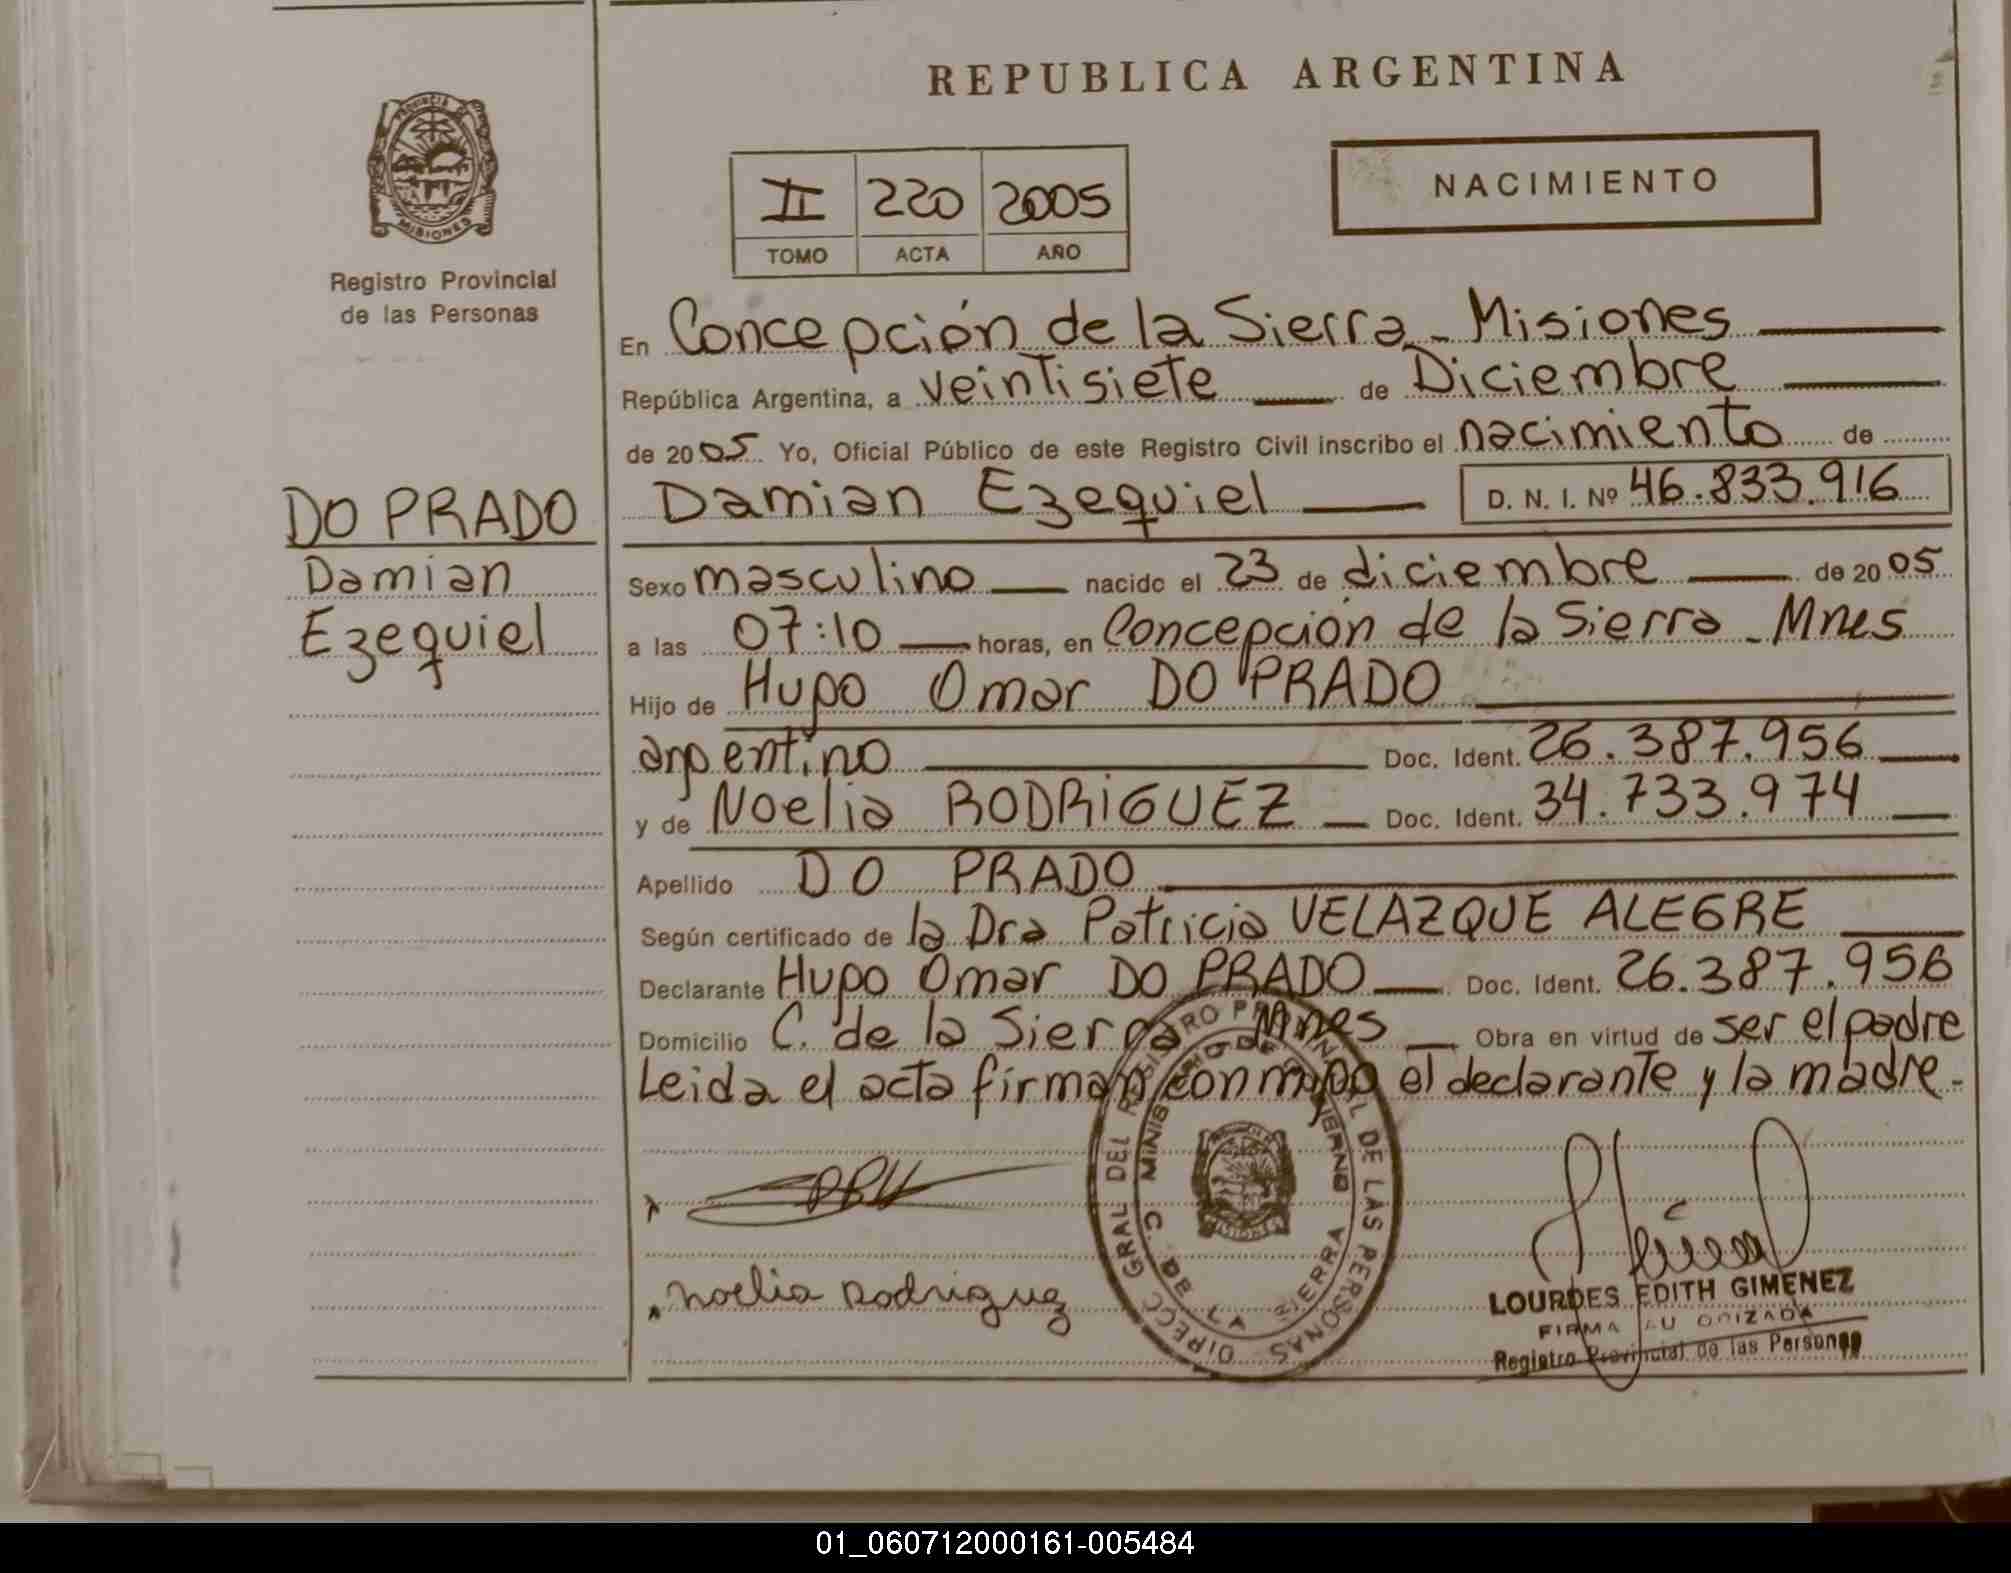 REPUBLICA ARGENTINA
PROVINCIA DE
MISIONES
Registro Provincial
de las Personas
II 220 2005
TOMO ACTA AÑO
NACIMIENTO
En Concepción de la Sierra - Misiones
República Argentina, a veintisiete de Diciembre
de 2005 Yo, Oficial Público de este Registro Civil inscribo el nacimiento de
DO PRADO
Damian
Ezequiel
Damian Ezequiel D. N. I. Nº 46.833.916
Sexo masculino nacido el 23 de diciembre de 2005
a las 07:10 horas, en Concepción de la Sierra - Mnes
Hijo de Hugo Omar DO PRADO
argentino Doc. Ident. 26.387.956
y de Noelia RODRIGUEZ Doc. Ident. 34.733.974
Apellido DO PRADO
Según certificado de la Dra Patricia VELAZQUE ALEGRE
Declarante Hugo Omar DO PRADO Doc. Ident. 26.387.956
Domicilio C. de la Sierra - Mnes Obra en virtud de ser el padre
Leida el acta firman conmigo el declarante y la madre.
DIRECC GRAL DEL REGISTRO PROVINCIAL DE LAS PERSONAS
MINISTERIO DE GOBIERNO
C. DE LA SIERRA
Noelia Rodriguez
LOURDES EDITH GIMENEZ
FIRMA AUTORIZADA
Registro Provincial de las Personas
01_060712000161-005484